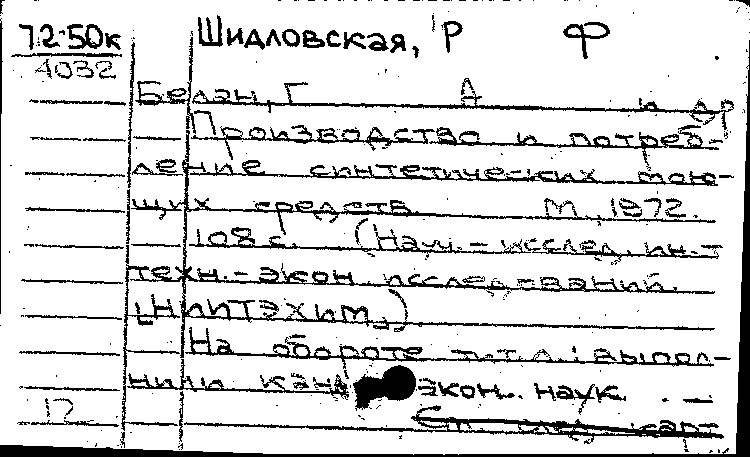 72-50к Шидловская, Р Ф
4032
Белан, Г А и др
Производство и потреб-
ление синтетических мою-
щих средств М., 1972.
108 с. (Науч.-исслед. ин-т
техн.-экон. исследований.
[НИИТЭХИМ]).
На обороте тит. л.: выпол-
нили канд экон. наук. . —
12 См след карт